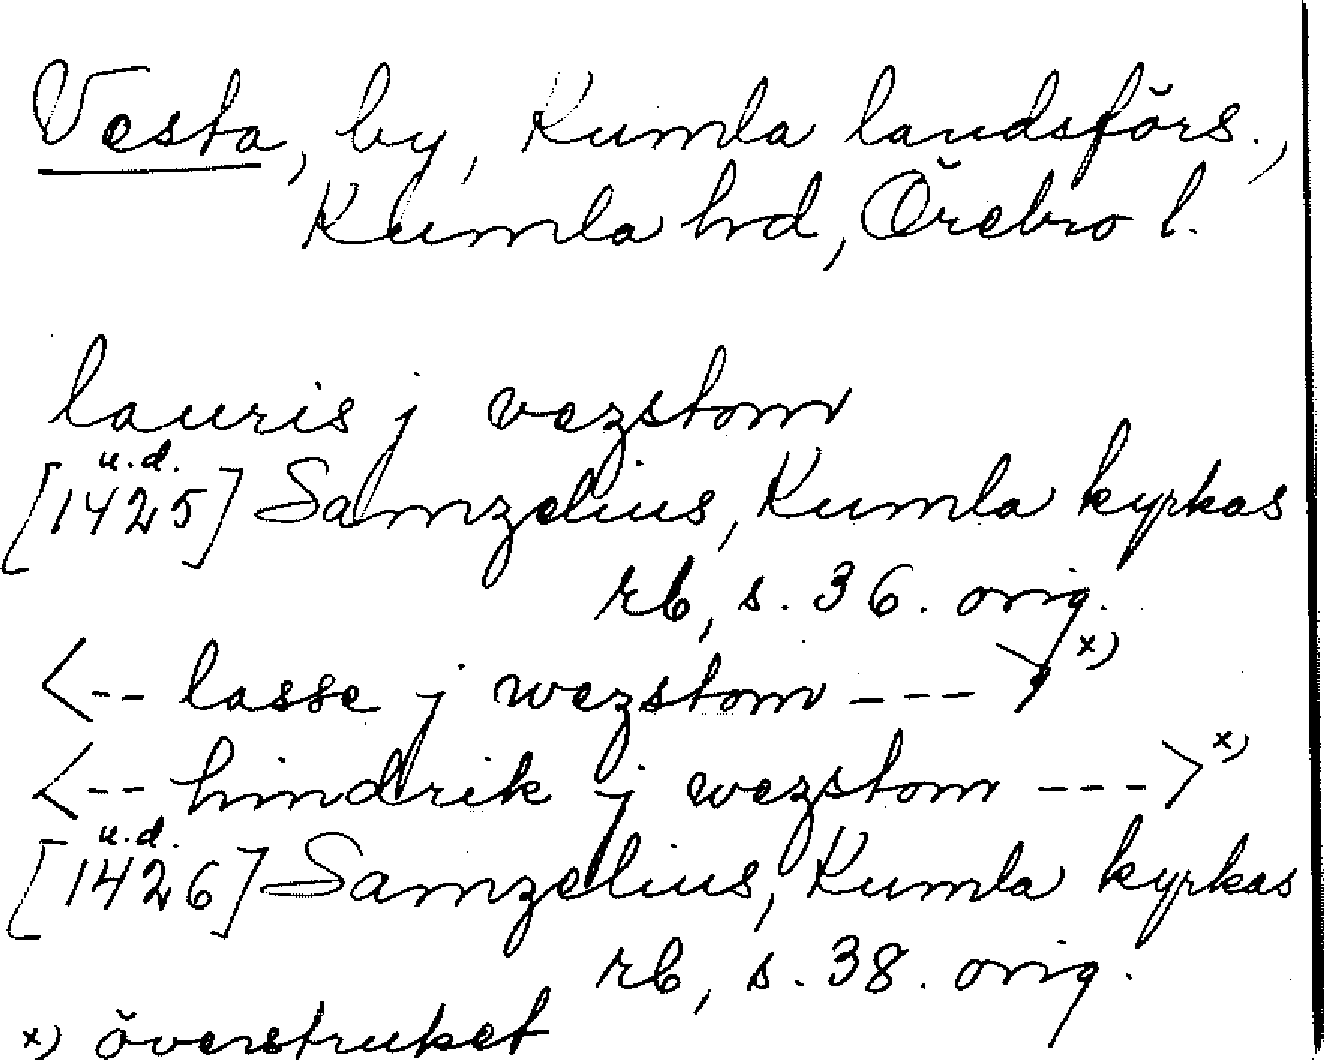 Vesta, by, Kumla landsförs.,
Kumla hd, Örebro l.
lauris j vezstom
u.d.
[1425] Samzelius, Kumla kyrkas
rb, s. 36. orig.
<-- lasse j wezstom --- >x)
<-- hindrik j wezstom --- >x)
u.d.
[1426] Samzelius, Kumla kyrkas
rb, s. 38. orig.
x) överstruket